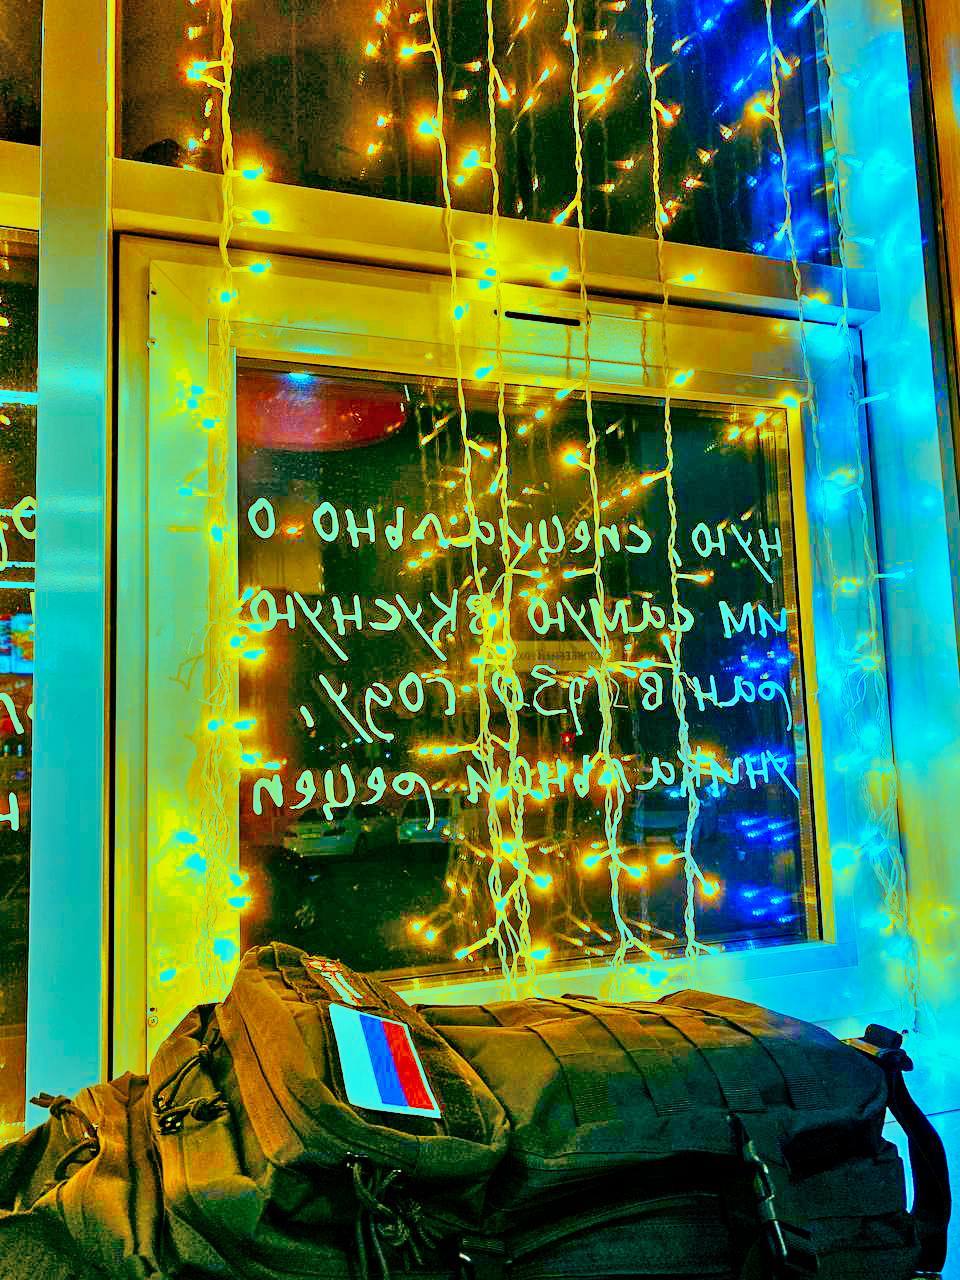 ную, специально о
им самую вкусную
ран в 1930 году,
уникальной рецеп